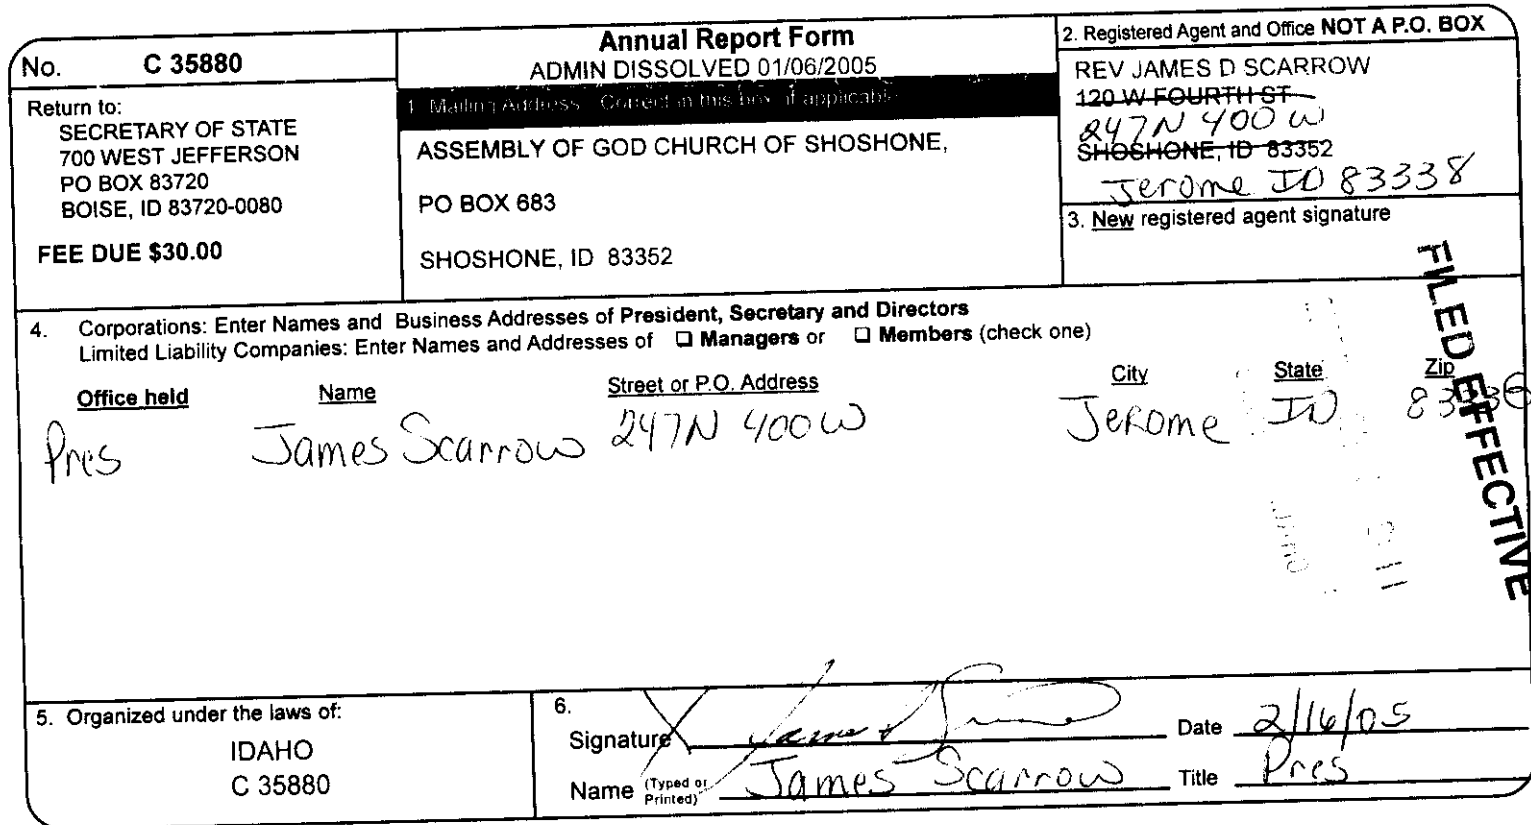 No. C 35880
Return to:
SECRETARY OF STATE
700 WEST JEFFERSON
PO BOX 83720
BOISE, ID 83720-0080
FEE DUE $30.00
Annual Report Form
ADMIN DISSOLVED 01/06/2005
1. Mailing Address: Correct in this box if applicable
ASSEMBLY OF GOD CHURCH OF SHOSHONE,
PO BOX 683
SHOSHONE, ID 83352
2. Registered Agent and Office NOT A P.O. BOX
REV JAMES D SCARROW
120 W FOURTH ST
247N 400 W
SHOSHONE, ID 83352
Jerome ID 83338
3. New registered agent signature
FILED EFFECTIVE
4. Corporations: Enter Names and Business Addresses of President, Secretary and Directors
Limited Liability Companies: Enter Names and Addresses of ❑ Managers or ❑ Members (check one)
Office held Name Street or P.O. Address City State Zip
Pres James Scarrow 247N 400 W Jerome ID
5. Organized under the laws of:
IDAHO
C 35880
6.
Signature Date 2/16/05
Name (Typed or Printed) James Scarrow Title Pres